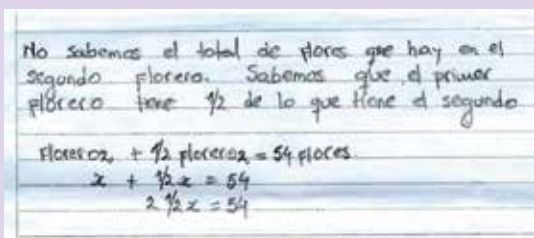 No sabemos el total de flores que hay en el
segundo florero. Sabemos que el primer
florero tiene 1/2 de lo que tiene el segundo
Florero2 + 1/2 florero2 = 54 flores.
x + 1/2 x = 54
2 1/2 x = 54